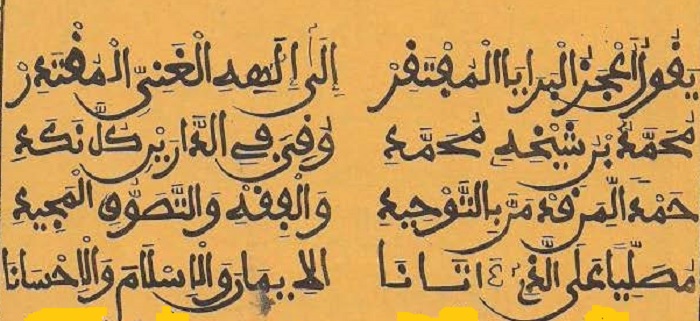 يَقُولُ أَعْجَزُ الْبَرَايَا الْمُفْتَقِرْ إِلَى إِلَهِهِ الْغَنِيِّ الْمُقْتَدِرْ
مُحَمَّدُ بْنُ شَيْخِهِ مُحَمَّدِ وُقِيَ فِي الدَّارَيْنِ كُلَّ نَكَدِ
حَمْدًا لِمَنْ قَدْ مَنَّ بِالتَّوْحِيدِ وَالْفِقْهِ وَالتَّصَوُّفِ الْمَجِيدِ
مُصَلِّيًا عَلَى الَّذِي أَتَانَا الِايمَانَ وَالْإِسْلَامَ وَالْإِحْسَانَا